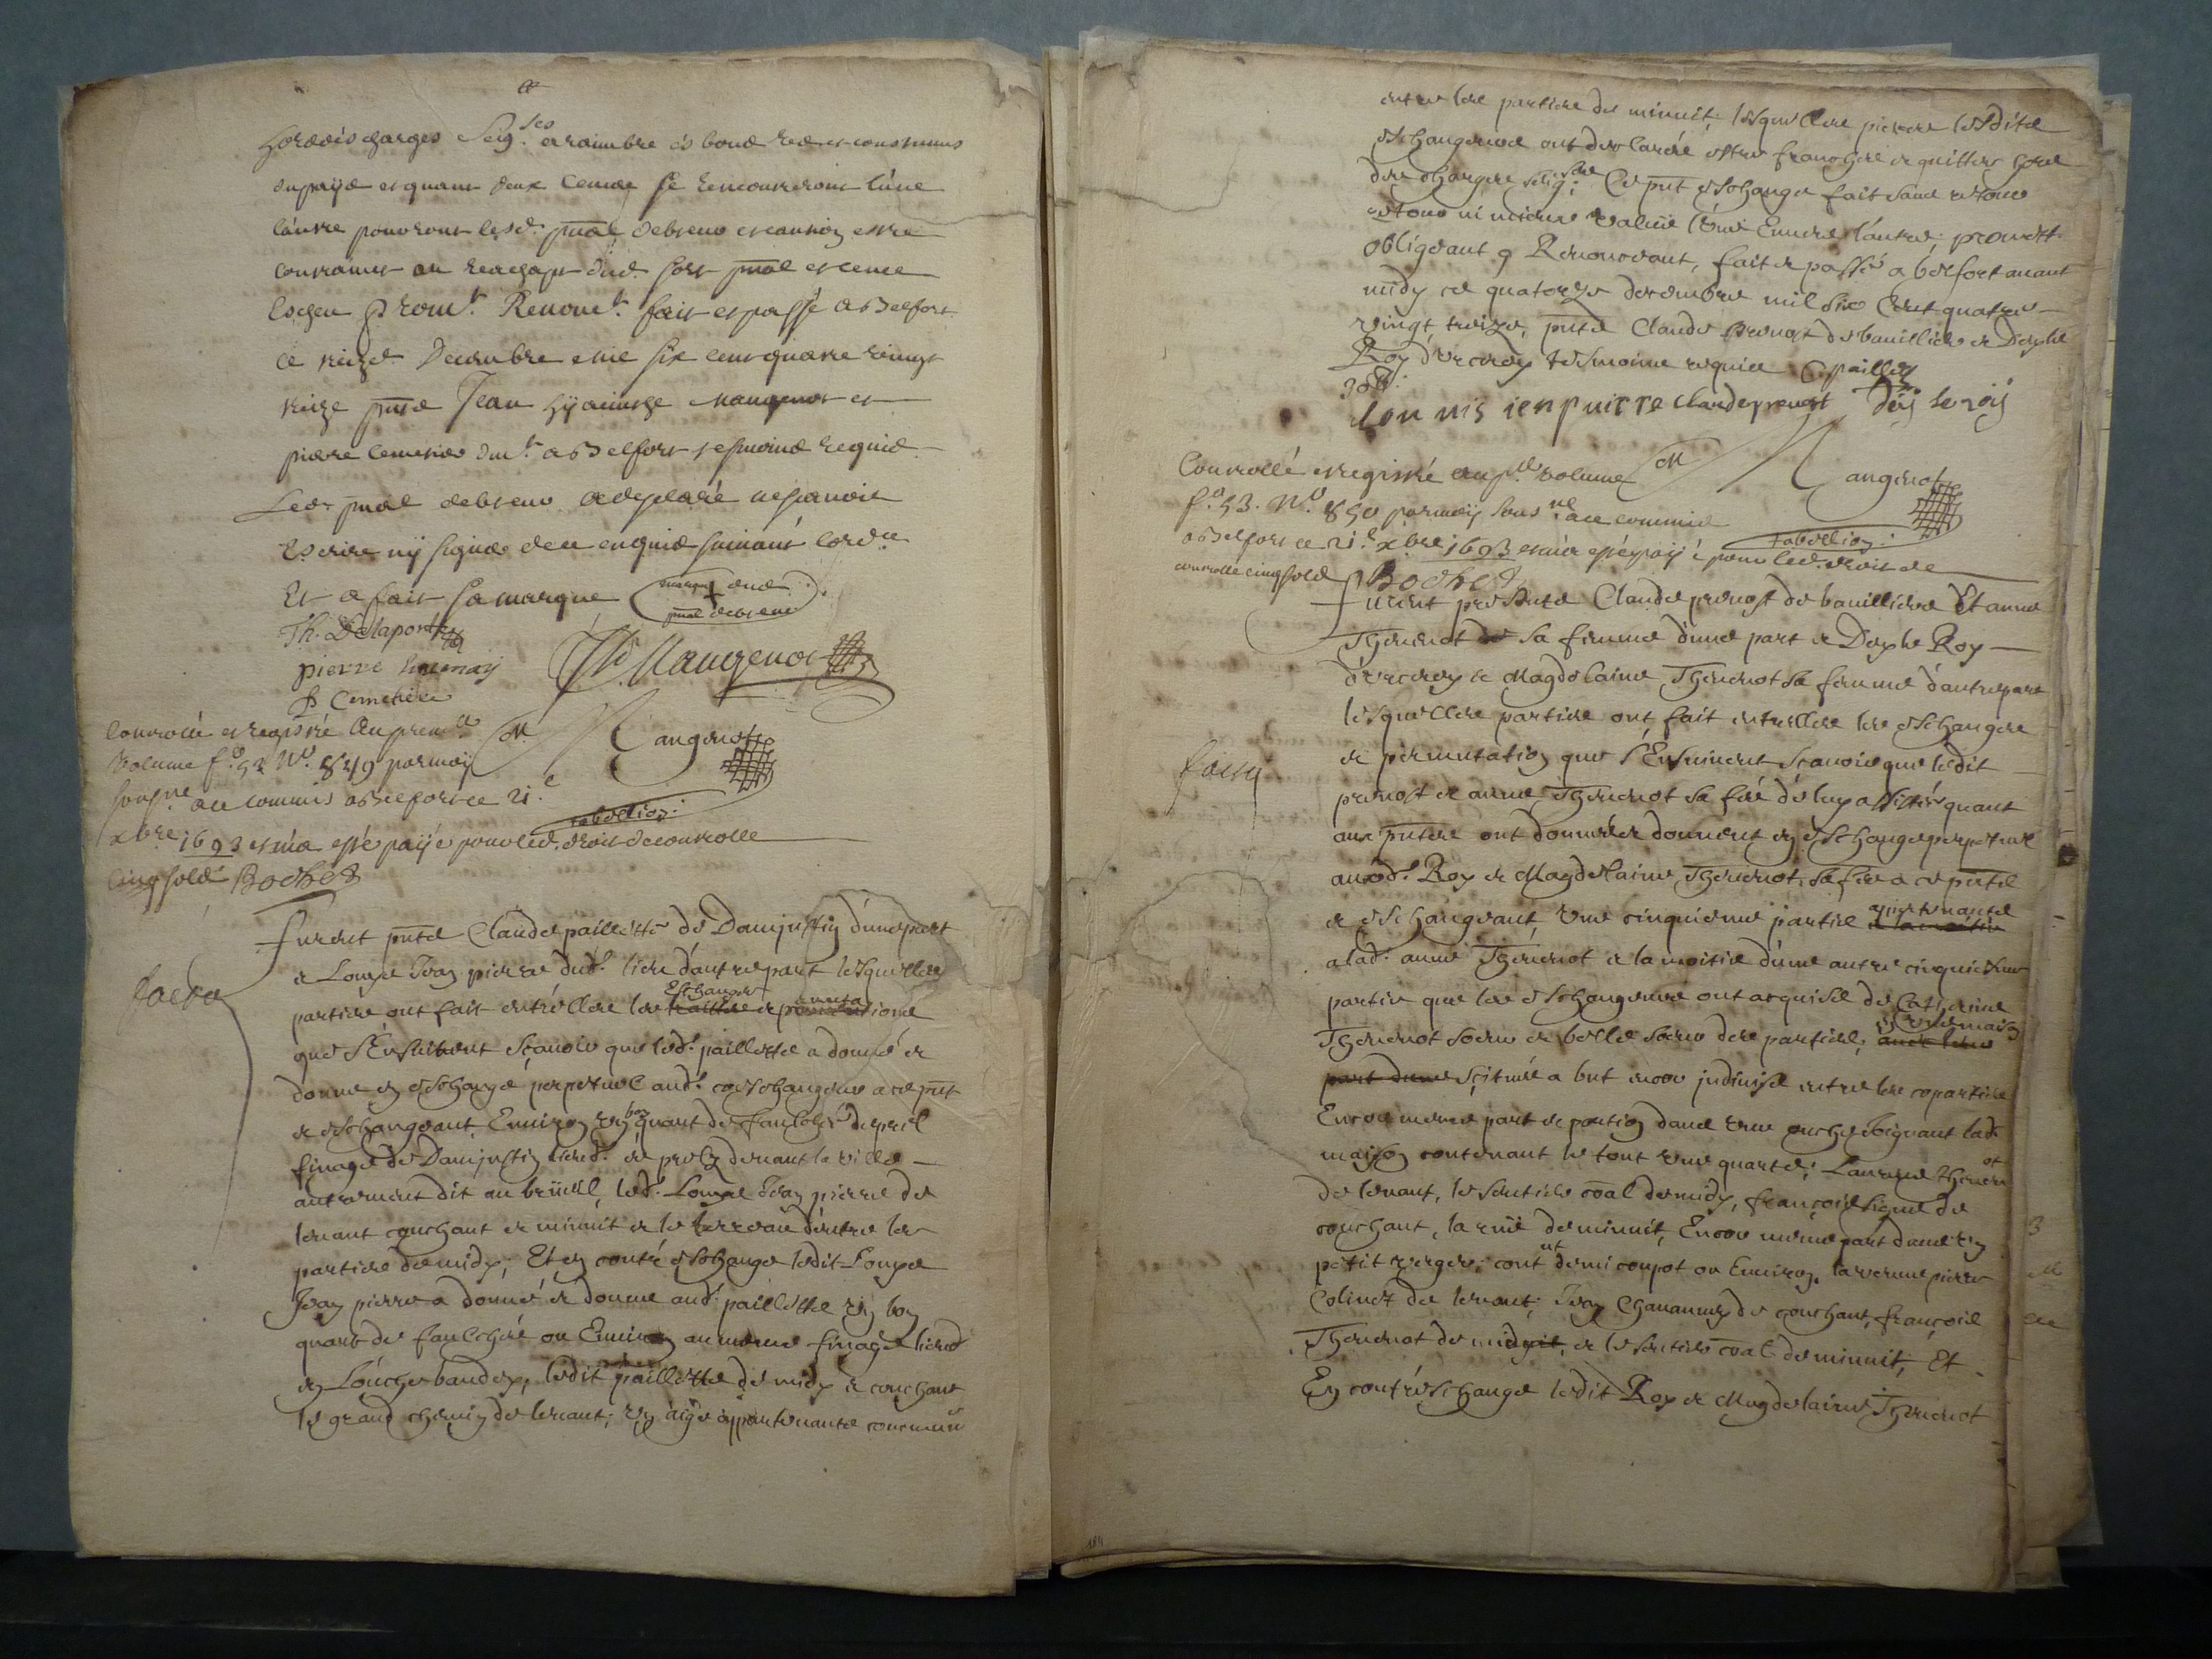 hordois charges Seig.les a raimbre és bons red. et coustumes
du païs et quant deux cences se rencontreront l'une
l'autre pourront lesd. pñal debteur et caution estre
contraints au reachapt dud. sort pñal et cence
escheu Prom.t Renonc.t fait et passé a Belfort
ce treize Decembre mie six cent quatre vingt
treize pñts Jean hÿacinthe Mangenot et
pierre Cemetiere dm.t a Belfort tesmoins requis
Led. pñal debteur a desclaré ne sçavoir
escrire nÿ signer de ce enquis suivant l'ord.ce
Et a fait sa marque marque dud. pñal debteur
Th. Delaporte
pierre
P Cemetiere
JH. Mangenot
Controllé et registré au prem.er
volume f.o 52 N.o 849 par moÿ
soubs.né au commis a Belfort ce 21.e
xbre 1693 et m'a esté païé pour led. droit de controlle
cinq sols Bochet
M Mangenot
tabellion
furent pñts Claude paillotte de Danjustin d'une part
et Loupe Jean pierre dud. lieu d'autre part lesquelles
parties ont fait entre elles les traittés Eschanges et permutations
que s'Ensuivent Sçavoir que led. paillotte a donné et
donne en eschange perpetuel aud. coeschangeur a ce pñt
et eschangeant Environ un bon quart de faulchée de prel
finage de Danjustin lieud. es prelz devant la ville
autrement dit au breüil, led. Loupe Jean pierre de
levant couchant et minuit et le terreau d'entre les
parties de midy; Et en contre eschange ledit Loupe
Jean pierre a donné et donne aud. paillotte un bon
quart de faulchée ou Environ au mesme finage lieud.
en L'ouche baudey, ledit paillotte de midy et couchant
le grand chemin de levant; un aige appartenante commune
facta
entre les parties de minuit; lesquelles pieces lesdits
eschangeurs ont desclaré estre franches et quittes hors
des charges seig.les Ce pñt eschange fait sans retour
retour ni mieux value l'un Envers l'autre; promett.
obligeant et Renonceant, fait et passé a belfort avant
midy ce quatorze decembre mil six Cent quatre
vingt treize, pñts Claude Prenost de bavilliers et Desle
Roy d'Urcerey tesmoins requis C paillotte
lou nis ien puirre Claude prenost Dèÿ le roÿ
Controllé et registré au p.er volume
f.o 53. N.o 850 par moÿ sous.né au commis
a Belfort ce 21.e xbre 1693 et m'a esté païé pour led. droit de
controlle cinq sols Bochet
M Mangenot
tabellion
furent presents Claude prenost de bavilliers Et anne
Thevenot de sa femme d'une part et Desle Roy
d'Urcerey et Magdelaine Thevenot sa femme d'autre part
lesquelles parties ont fait entre elles les eschanges
et permutation que s'Ensuivent Sçavoir que ledit
prenost et anne Thevenot sa fẽ de luy assistée quant
aux pñtes ont donné et donnent en eschange perpetuel
ausd. Roy et Magdelaine Thevenot, sa fẽ a ce pñts
et eschangeant, une cinquieme partie et la moitie appartenante
a lad. anne Thevenot et la moitie d'une autre cinquieme
partie que les eschangeurs ont acquise de Catherine
Thevenot soeur et belle soeur des parties, avec leur es une maison
part d'une scituée a but encor indivise entre les coparties
Encor mesme part et portion dans une ouche Joignant lad.
maison contenant le tout une quarte; Laurent Thevenot
de levant, le sentier coãl de midy, françois signe de
couchant, la rüe de minuit, Encor mesme part dans un
petit verger, cont.nt demi coupot ou Environ, la vefve pierre
Colinet de levant; Jean Chanamey de couchant, françois
Thevenot de midy, et le sentier coãl de minuit, Et
En contreschange ledit Roy et Magdelaine Thevenot
facta